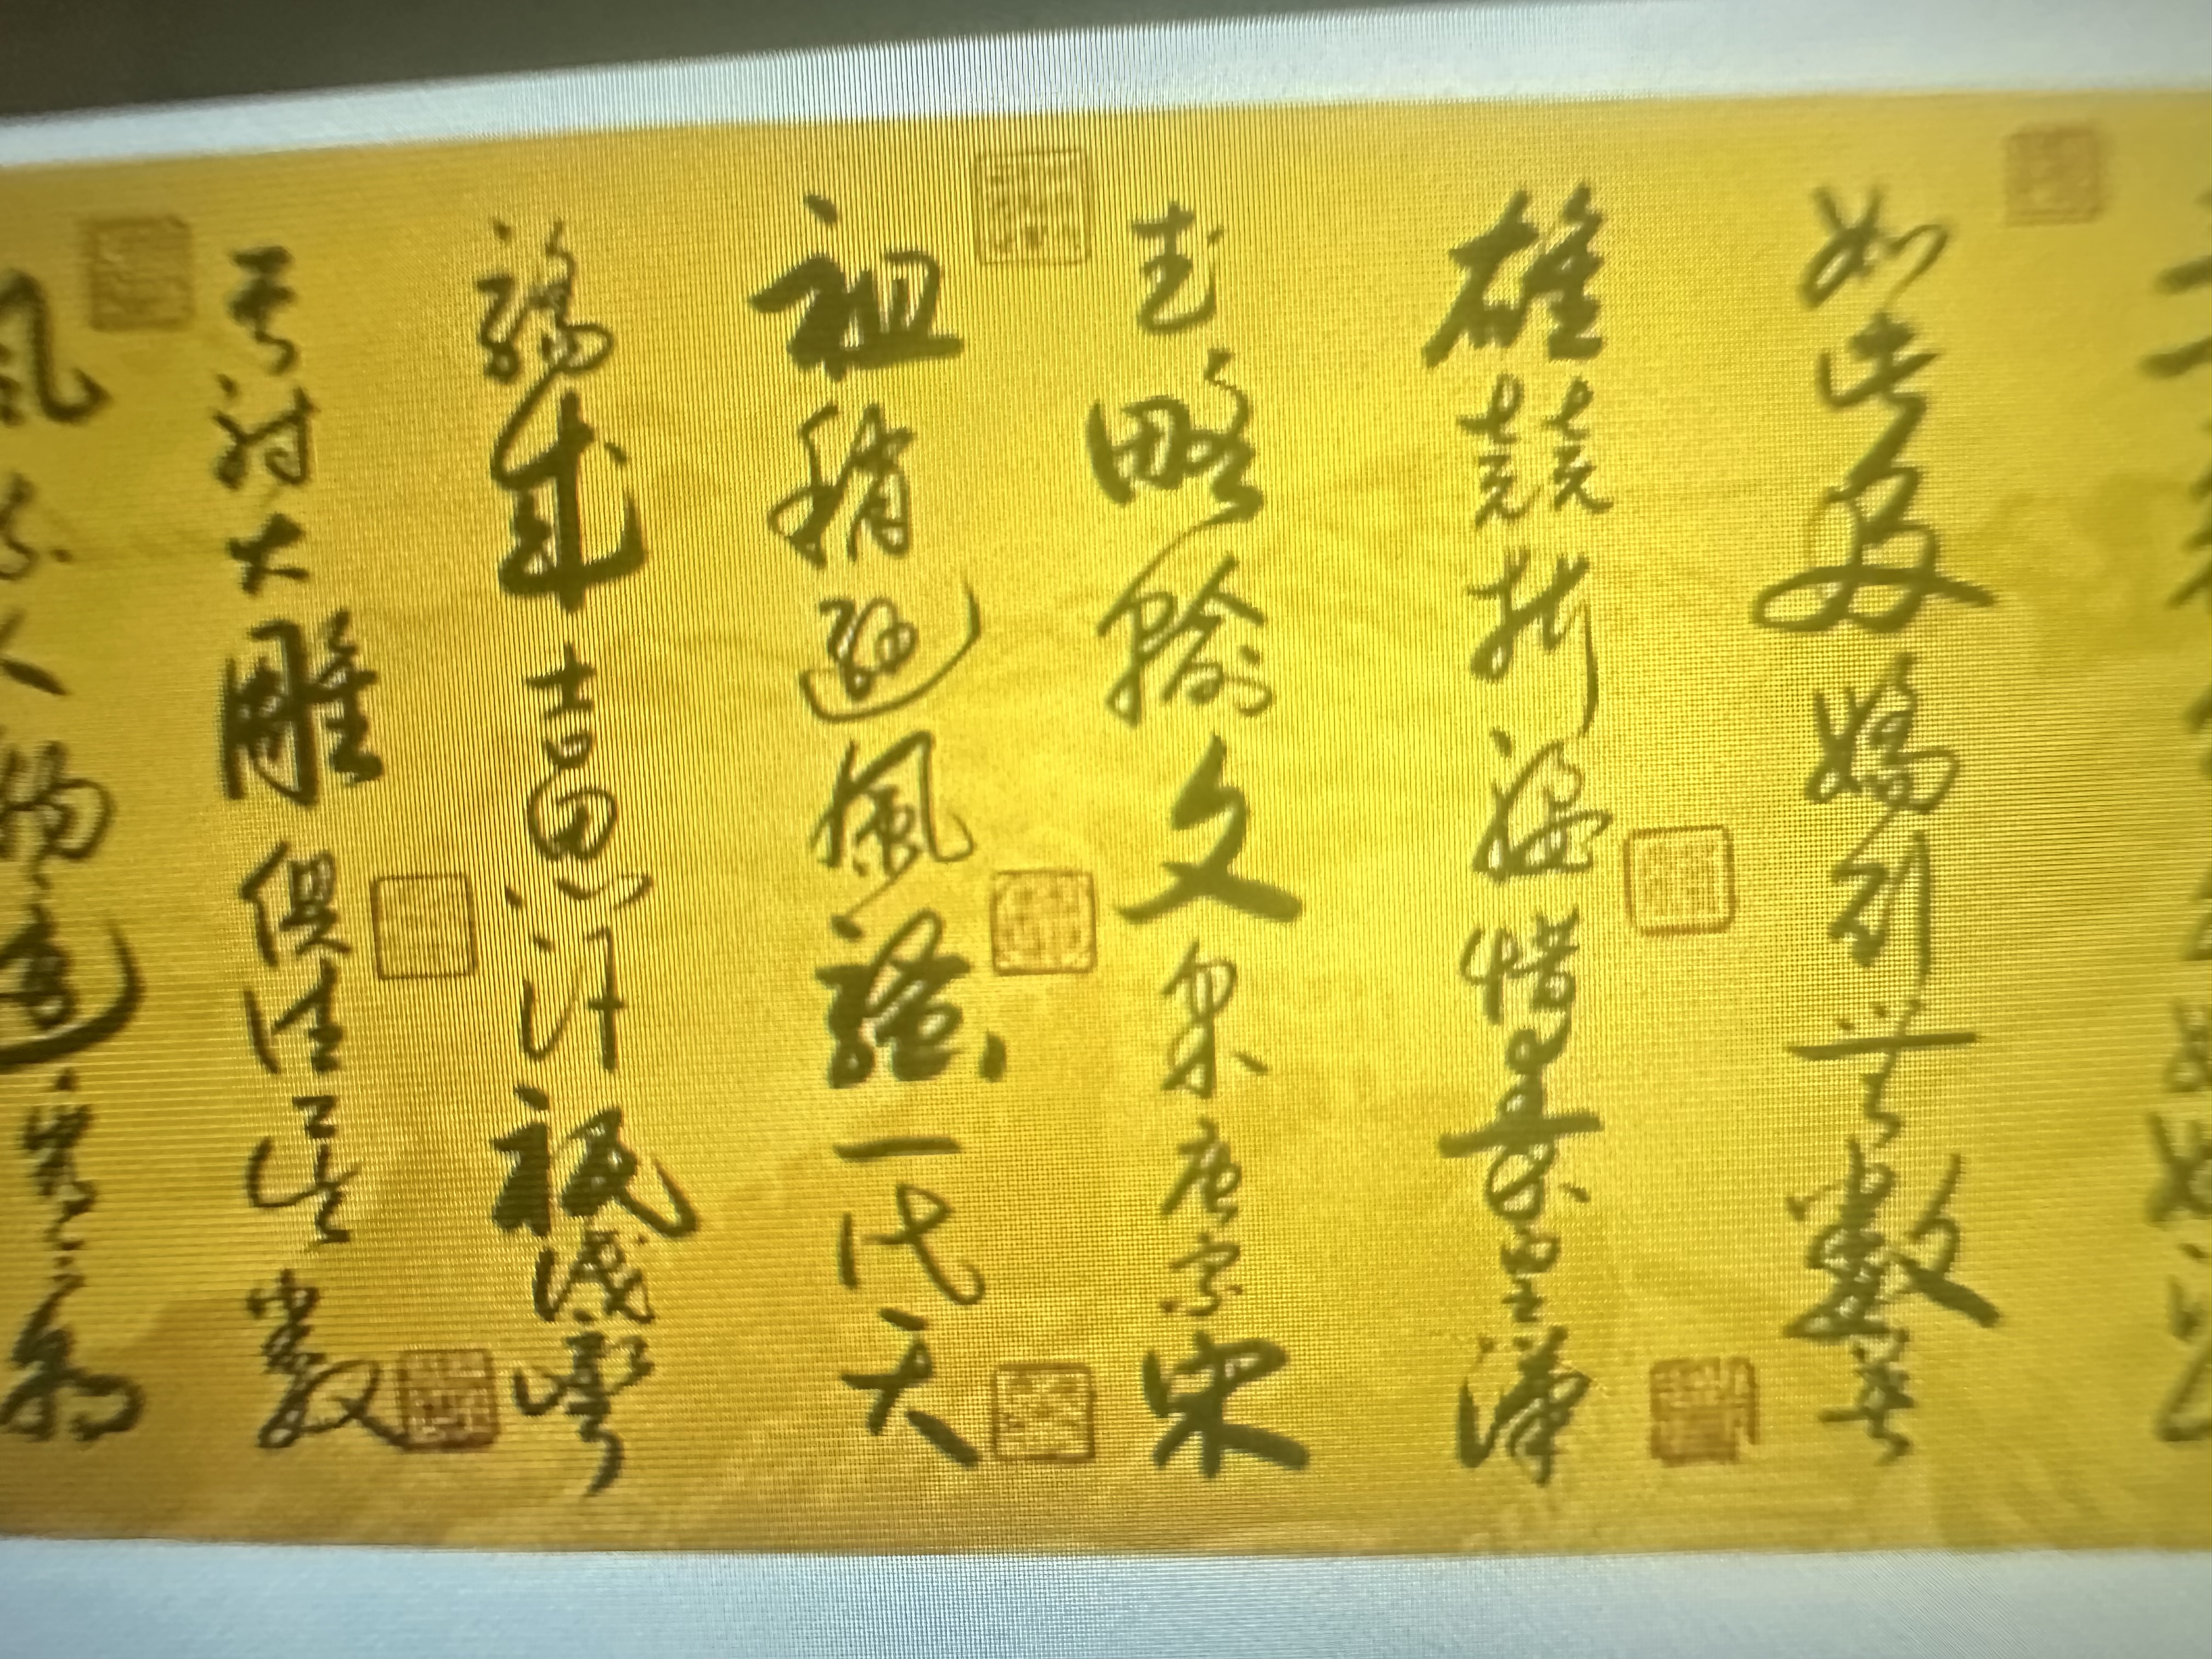 如此多嬌引無數英
雄競折腰惜秦皇漢
武略輸文采唐宗宋
祖稍遜風騷一代天
驕成吉思汗祇識彎
弓射大雕俱往矣數
風流人物還看今朝